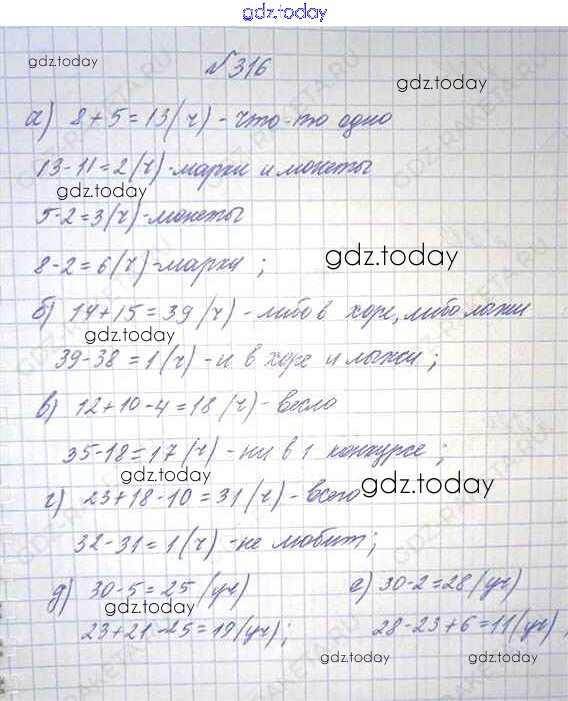 gdz.today
gdz.today
№316
а) 8+5=13(ч) - что-то одно
gdz.today
13-11=2(ч) - марки и монеты
gdz.today
5-2=3(ч) - монеты
gdz.today
8-2=6(ч) - марки;
б) 14+15=39(ч) - либо в хоре, либо лыжи
gdz.today
39-38=1(ч) - и в хоре и лыжи;
в) 12+10-4=18(ч) - всего
35-18=17(ч) - ни в 1 конкурсе;
gdz.today
gdz.today
г) 23+18-10=31(ч) - всего
32-31=1(ч) - не любит;
д) 30-5=25(уч)
е) 30-2=28(уч)
gdz.today
23+21-25=19(уч);
28-23+6=11(уч),
gdz.today
gdz.today